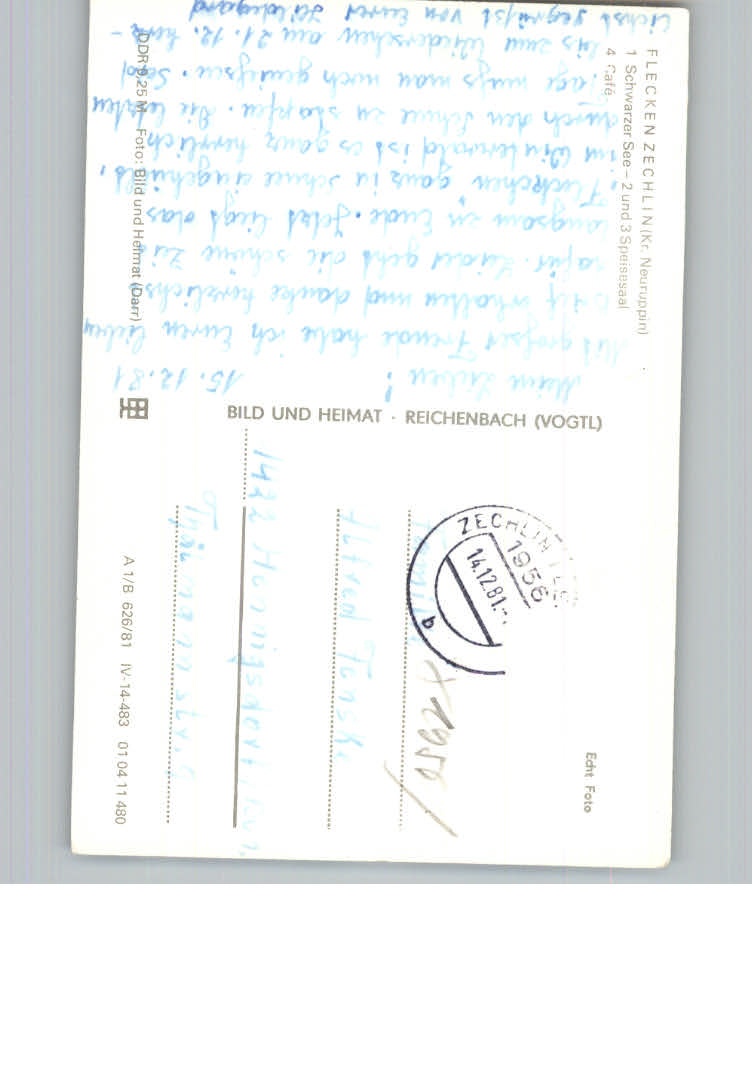 FLECKEN ZECHLIN (Kr. Neuruppin)
1 Schwarzer See – 2 und 3 Speisesaal
4 Café
Meine Lieben! 15.12.81
Mit großer Freude habe ich Euren lieben
Brief erhalten und danke herzlichst
dafür. Leider geht die schöne Zeit
langsam zu Ende. Jetzt liegt das
Fleckchen ganz in Schnee eingehüllt,
im Winterwald ist es ganz herrlich
durch den Schnee zu stapfen. Die letzten
Tage muß man noch genießen.
bis zum Wiedersehen am 21.12. herz-
lichst gegrüßt von Eurer Hildegard
DDR 0,25 M Foto: Bild und Heimat (Darr)
BILD UND HEIMAT · REICHENBACH (VOGTL)
ZECHLIN
1956
14.12.81
b
Familie
Alfred
1422 Hennigsdorf
Echt Foto
A 1/B 626/81 IV-14-483 01 04 11 480